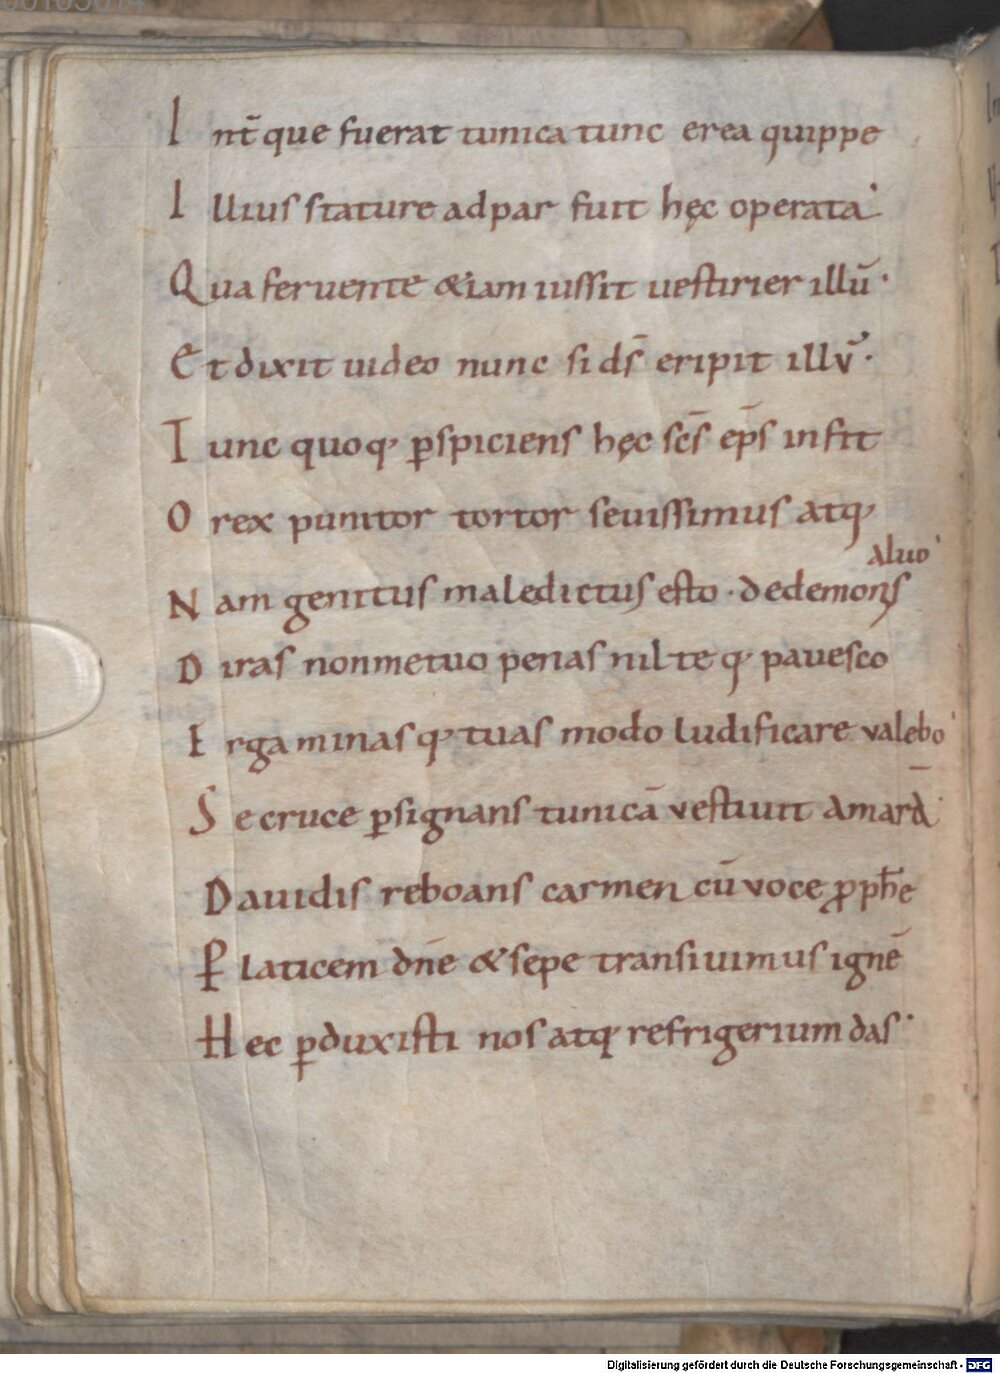 I nt̄que fuerat tunica tunc erea quippe
I llius stature adpar fuit hęc operata·
Q ua feruente &iam iussit uestirier illū·
Et dixit uideo nunc si ds̄ eripit illv̄·
T unc quoq; ꝑspiciens hęc scs̄ ep̄s infit
O rex punitor tortor seuissimus atq;
aluo·
N am genitus maledictus esto · dedemonis
D iras nonmetuo penas nil te q; pauesco
E rga minas q; tuas modo ludificare valebo·
S e cruce ꝑsignans tunicā vestiuit amarā·
Dauidis reboans carmen cū voce ꝓph̄e
P̱ laticem dn̄e & sepe transiuimus ignē
Hec ꝑduxisti nos atq; refrigerium das·
Digitalisierung gefördert durch die Deutsche Forschungsgemeinschaft - DFG